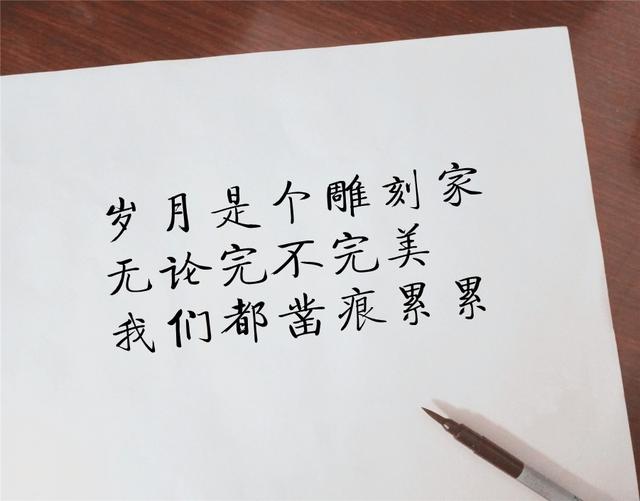 岁月是个雕刻家
无论完不完美
我们都凿痕累累